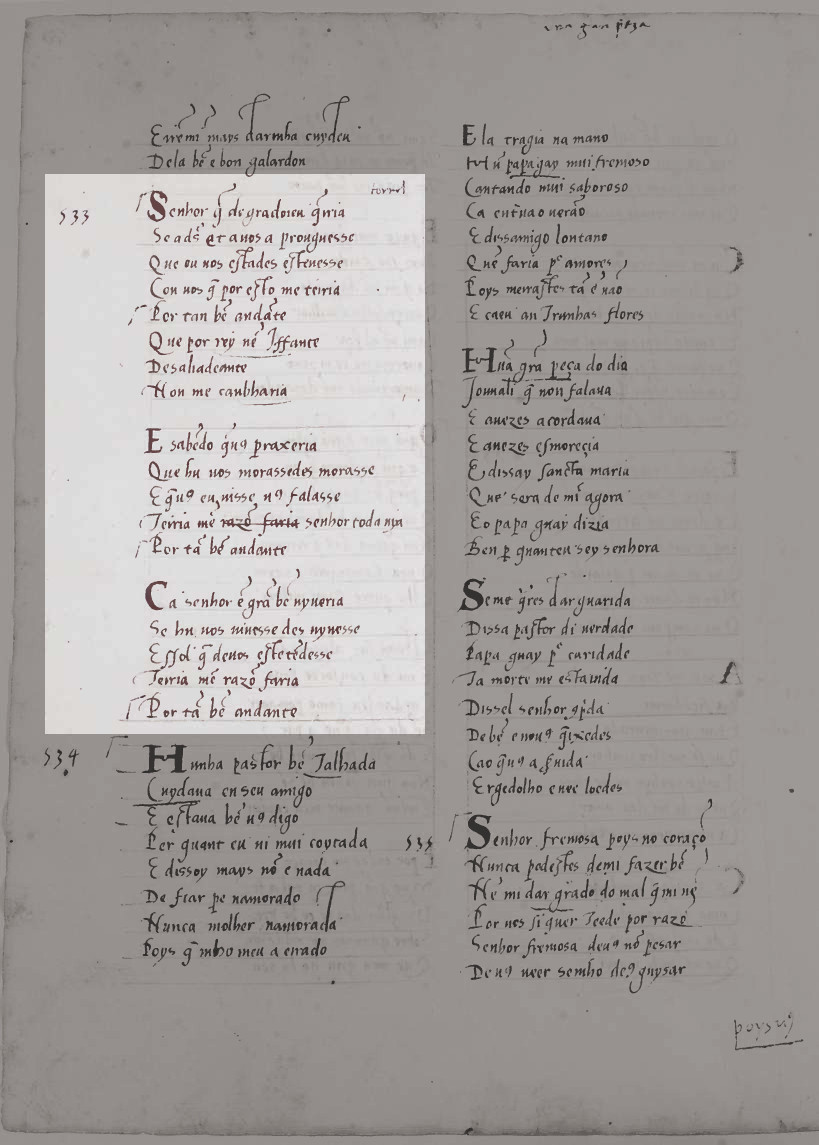 Eirem̃i mays darmha cuydeu
Dela bẽ e bon galardon
tornel
533
Senhor q̃ degradoieu q̃ria
Se ads̃ et a uos a prouguesse
Que ou uos estades esteuesse
Con uos q̃ por esto me teiria
Por tan bẽ andãte
Que por rey nẽ Iffante
Desaliadeante
Non me canbharia
E sabẽdo q̃ uꝯ praxeria
Que hu uos morassedes morasse
E q̃ uꝯ eu uisse uꝯ falasse
Teiria mẽ razõ faria senhor toda uia
Por tã bẽ andante
Ca senhor ẽ grã bẽ uyueria
Se hu uos uiuesse des uyuesse
E ssol q̃ deuos estetẽdesse
Teiria mẽ razõ faria
Por tã bẽ andante
534
Hunha pastor bẽ Talhada
Cuydaua en seu amigo
E estaua bẽ uꝯ digo
Per quant eu ui mui coytada
E dissoy mays nõ e nada
De fiar pe namorado
Nunca molher namorada
Poys q̃ mho meu a errado
una gan p̃tza
Ela tragia na mano
Hũ papagay mui fremoso
Cantando mui saboroso
Ca entraua o uerão
E dissamigo lontano
Quẽ faria p̃ amores
Poys meirastes tã ẽ uão
E caeu an Trunhas flores
Hũa grã peça do dia
Iouuali q̃ non falaua
E auezes acordaua
E auezes esmoreçia
E dissay sancta maria
Que sera de mi agora
E o papa guay dizia
Ben p̃ quanteu sey senhora
Seme q̃res dar guarida
Dissa pastor di uerdade
Papa guay p̃ caridade
Ca morte me esta uida
Dissel senhor ꝯp̃da
De bẽ e nou uꝯ q̃ixedes
Ca o q̃ uꝯ a s̃uida
Ergedolho e uee loedes
535
Senhor fremosa poys no coraçõ
Nunca podestes demi fazer bẽ
Nẽ mi dar grado do mal q̃ mi uẽ
Por uos si quer Teede por razõ
Senhor fremosa deuꝯ nõ pesar
De uꝯ ueer semho deꝯ guysar
poys uꝯ